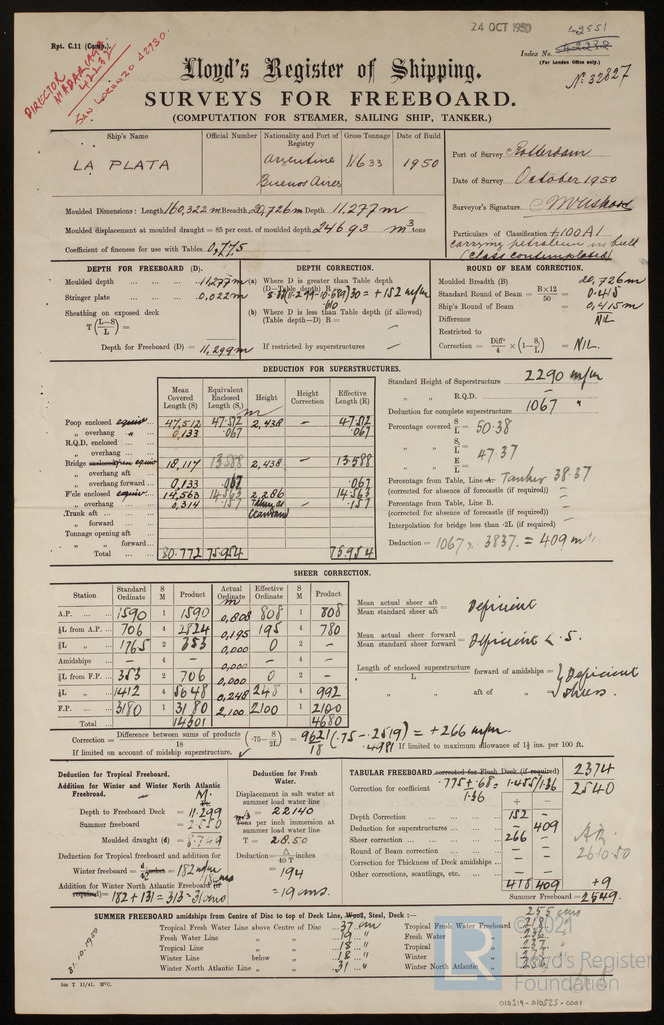 24 OCT 1950
Rpt. C.11 (Comp.).
42551
Index No. 42232
(For London Office only.)
No 32827
DIRECTOR
MADARIAGA
42232
SAN LORENZO 42730.
Lloyd's Register of Shipping.
SURVEYS FOR FREEBOARD.
(COMPUTATION FOR STEAMER, SAILING SHIP, TANKER.)
Ship's Name
Official Number
Nationality and Port of Registry
Gross Tonnage
Date of Build
LA PLATA
Argentine
Buenos Aires
11633
1950
Port of Survey Rotterdam
Date of Survey October 1950
Surveyor's Signature
Particulars of Classification +100A1
carrying petroleum in bulk
(class contemplated)
Moulded Dimensions: Length 160,322 m Breadth 20,726 m Depth 11,277 m
Moulded displacement at moulded draught = 85 per cent. of moulded depth 24693 m3 tons
Coefficient of fineness for use with Tables 0,775
DEPTH FOR FREEBOARD (D).
Moulded depth 11,277 m
Stringer plate 0,022 m
Sheathing on exposed deck
T (L-S/L) =
Depth for Freeboard (D) = 11,299 m
DEPTH CORRECTION.
(a) Where D is greater than Table depth
(D—Table depth) R =
= +152 m/m
(b) Where D is less than Table depth (if allowed)
(Table depth—D) R =
If restricted by superstructures
ROUND OF BEAM CORRECTION.
Moulded Breadth (B) 20,726 m
Standard Round of Beam = B×12/50 = 0.415
Ship's Round of Beam = 0,415 m
Difference NIL
Restricted to
Correction = Diffce/4 × (1-S1/L) = NIL.
DEDUCTION FOR SUPERSTRUCTURES.
Mean Covered Length (S)
Equivalent Enclosed Length (S1)
Height
Height Correction
Effective Length (E)
m
Poop enclosed equiv 47,512 47.512 2,438 — 47.512
„ overhang „ 0,133 .067 .067
R.Q.D. enclosed
„ overhang
Bridge enclosed equiv 18,117 13.588 2,438 — 13.588
„ overhang aft
„ overhang forward 0,133 .067 .067
F'cle enclosed equiv. 14,563 14.563 2,286 14.563
„ overhang 0,314 .157 Taken as standard .157
Trunk aft
„ forward
Tonnage opening aft
„ „ forward
Total 80.772 75.954 75.954
Standard Height of Superstructure 2290 m/m
„ „ R.Q.D. —
Deduction for complete superstructure 1067 „
Percentage covered S/L = 50.38
„ „ S1/L =
47.37
„ „ E/L =
Percentage from Table, Line A. Tanker 38.37
(corrected for absence of forecastle (if required)) —
Percentage from Table, Line B.
(corrected for absence of forecastle (if required)) —
Interpolation for bridge less than ·2L (if required) —
Deduction = 1067 × .3837. = 409 m/m
SHEER CORRECTION.
Station
Standard Ordinate
S M
Product
Actual Ordinate
Effective Ordinate
S M
Product
m
A.P. 1590 1 1590 0,808 808 1 808
⅙L from A.P. 706 4 2824 0,195 195 4 780
⅔L „ 1765 2 353 0,000 0 2 —
Amidships — 4 — 0,000 — 4 —
⅓L from F.P. 353 2 706 0,000 0 2 —
⅙L „ 1412 4 5648 0,248 248 4 992
F.P. 3180 1 3180 2,100 2100 1 2100
Total 14301 4680
Mean actual sheer aft
Mean standard sheer aft = Deficient
Mean actual sheer forward
Mean standard sheer forward = Deficient L.S.
Length of enclosed superstructure forward of amidships =
L
„ aft of „ =
Deficient
sheer.
Correction = Difference between sums of products/18 (·75- S/2L) = 9621/18 (.75 - .2519) = +266 m/m.
.4981
If limited on account of midship superstructure.
If limited to maximum allowance of 1½ ins. per 100 ft.
Deduction for Tropical Freeboard.
Addition for Winter and Winter North Atlantic Freeboard. — M.
Ft.
Depth to Freeboard Deck = 11.299
Summer freeboard = 2.550
Moulded draught (d) = 8.749
Deduction for Tropical freeboard and addition for
Winter freeboard = d/4 inches = 182 m/m
18 cms
Addition for Winter North Atlantic Freeboard (if required) = 182 + 131 = 313 = 31 cms
Deduction for Fresh Water.
Displacement in salt water at summer load water line
Δ = 22140
m3
Tons per inch immersion at summer load water line
T = 28.50
Deduction = Δ/40 T inches
= 194
= 19 cms.
TABULAR FREEBOARD corrected for Flush Deck (if required) 2374
Correction for coefficient .775+.68/1.36 = 1.455/1.36 2540
+ -
Depth Correction 152 —
Deduction for superstructures 409
Sheer correction 266 —
Round of Beam correction — —
Correction for Thickness of Deck amidships — —
Other corrections, scantlings, etc. — —
418 409 +9
Summer Freeboard = 2549.
26.10.50
SUMMER FREEBOARD amidships from Centre of Disc to top of Deck Line, Wood, Steel, Deck :— 255 cms
Tropical Fresh Water Line above Centre of Disc 37 cm
Fresh Water Line „ „ 19 „
Tropical Line „ „ 18 „
Winter Line below „ 18 „
Winter North Atlantic Line „ „ 31 „
Tropical Fresh Water Freeboard 218
Fresh Water „ 236
Tropical „ 237
Winter „
Winter North Atlantic „ 286
31.10.1950
2m T 11/41. McC.
© 2021
LR
Lloyd's Register
Foundation
010519-010525-0001